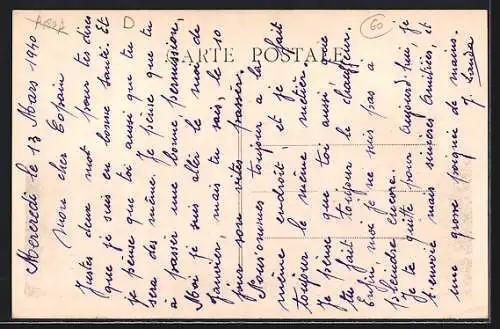 CARTE POSTALE
D
60
Mercredi le 13 Mars 1940
Mon cher Copain
Justes deux mot pour tes dires
que je suis en bonne santé. Et
je pense que toi aussi que tu
sera des même. Je pense que tu
à passer une bonne permission,
Moi je suis aller le mois de
Janvier, mais tu sais, le 10
jour son vites passer.
Nousommes toujour a la
même endroit, et je fait
toujour le même métier.
Je pense que toi aussi
tu fait toujour le chauffeur.
Enfin moi je ne suis pas a
plaindre encore.
Je te quite pour Aujourd'hui, je
t'envoie mais sincères Amitiées, et
une grosse poignée de mains.